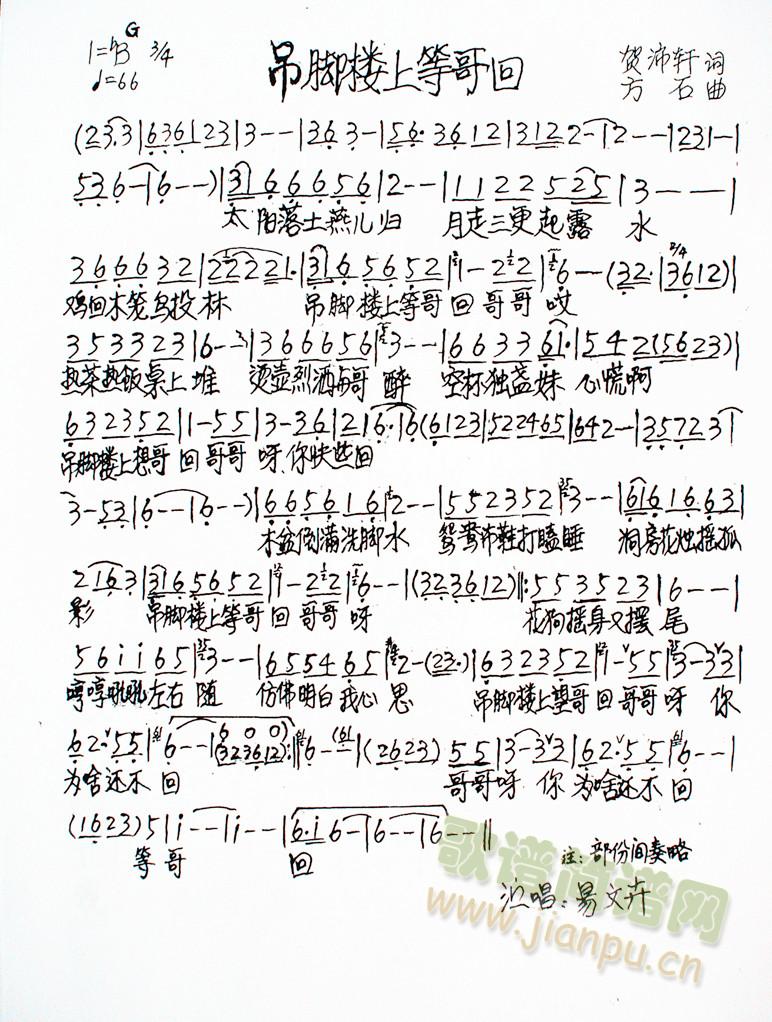 1=♭B G 3/4
♩=66
吊脚楼上等哥回
贺沛轩 词
方石 曲
(23·3|636123|3--|363-|56·3612|31222-|2--|231-|
536-|6--)|3166656|2--|112255 25|3---|
太阳落土燕儿归 月走三更起露 水
366632|22221·|3165652|1-22|6--(32·|3612)|
2/4
鸡回木笼鸟投林 吊脚楼上等哥 回 哥哥 哎
353323|6--|3666656|3--|663361·|542(5623)|
热茶热饭桌上堆 烫壶烈酒与哥 醉 空杯独盏妹 心慌啊
632352|1-55|3-36|216·|6(6123|522465|642--|357231|
吊脚楼上想哥 回 哥哥 呀 你快些回
3-53|6--|6--)|665616|2--|552352|3--|6161663|
木盆倒满洗脚水 鸳鸯布鞋打瞌睡 洞房花烛摇孤
2163|3165652|1-22|6--|(323612)|:553523|6--|
影 吊脚楼上等哥 回 哥哥 呀 花狗摇身又摆 尾
56ii65|3--|655465|2-(23·)|632352|1-55|3-33|
哼哼吼吼左右随 仿佛明白我心 思 吊脚楼上望哥 回 哥哥 呀 你
62·55|6--|(600) (323612):|6-(61|(2623)55|3-33|62·55|6--|
为啥还不 回 哥哥呀 你 为啥还不 回
(1623)5|i--|i--|6·i6-|6--|6--||
等哥 回
注:部份间奏略
演唱:易文卉
歌谱简谱网
www.jianpu.cn